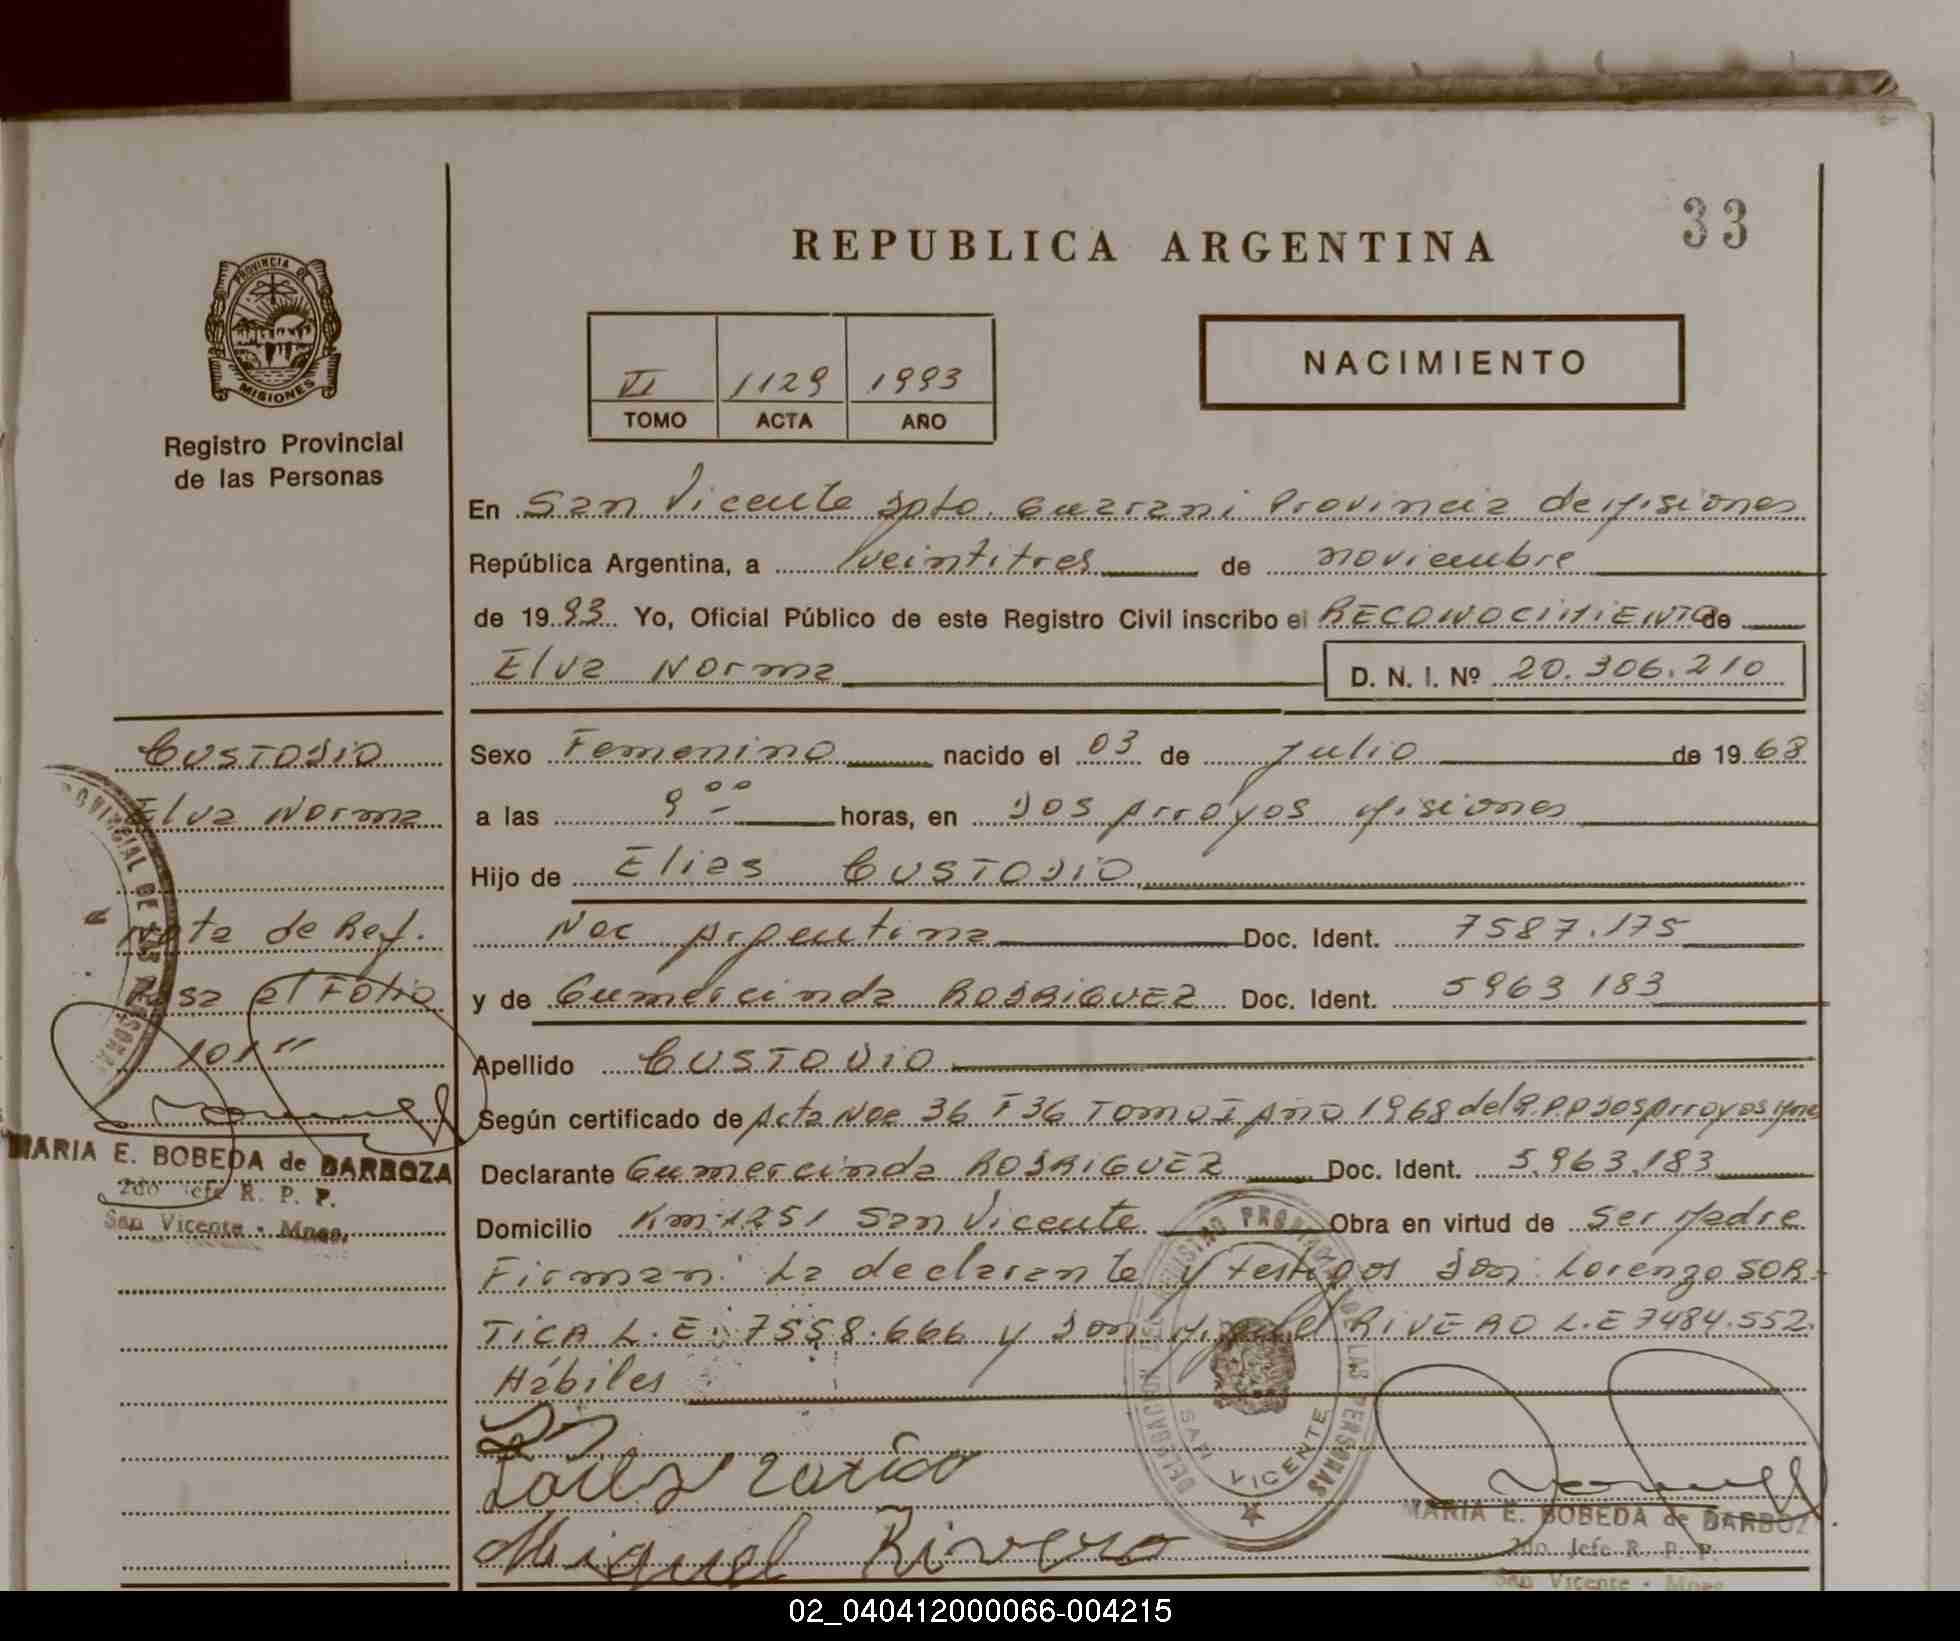 33
REPUBLICA ARGENTINA
PROVINCIA DE
MISIONES
Registro Provincial
de las Personas
VI 1129 1993
TOMO ACTA AÑO
NACIMIENTO
En San Vicente Dpto. Guarani Provincia de Misiones
República Argentina, a veintitres de noviembre
de 1993. Yo, Oficial Público de este Registro Civil inscribo el RECONOCIMIENTO de
Elva Norma D. N. I. Nº 20.306.210
CUSTODIO
Elva Norma
Nota de Ref.
Pasa al Folio
101"
MARIA E. BOBEDA de BARBOZA
2do Jefe R. P. P.
San Vicente - Mnes.
Sexo Femenino nacido el 03 de Julio de 1968
a las 9 00 horas, en Dos Arroyos Misiones
Hijo de Elias CUSTODIO
Nac Argentina Doc. Ident. 7587.175
y de Gumercinda RODRIGUEZ Doc. Ident. 5963 183
Apellido CUSTODIO
Según certificado de Acta Nac 36 F36 Tomo I Año 1968 del R.P.P Dos Arroyos Mnes
Declarante Gumercinda RODRIGUEZ Doc. Ident. 5.963.183
Domicilio Km. 1251 San Vicente Obra en virtud de Ser Madre
Firman: La declarante y testigos Don: Lorenzo SOR-
TICA L.E. 7558.666 y Don Miguel RIVERO L.E 7484.552.
Hábiles
Miguel Rivero
DELEGACION DEL REGISTRO PROVINCIAL DE LAS PERSONAS
SAN VICENTE
MARIA E. BOBEDA de BARBOZ
2do. Jefe R. P. P.
San Vicente - Mnes.
02_040412000066-004215